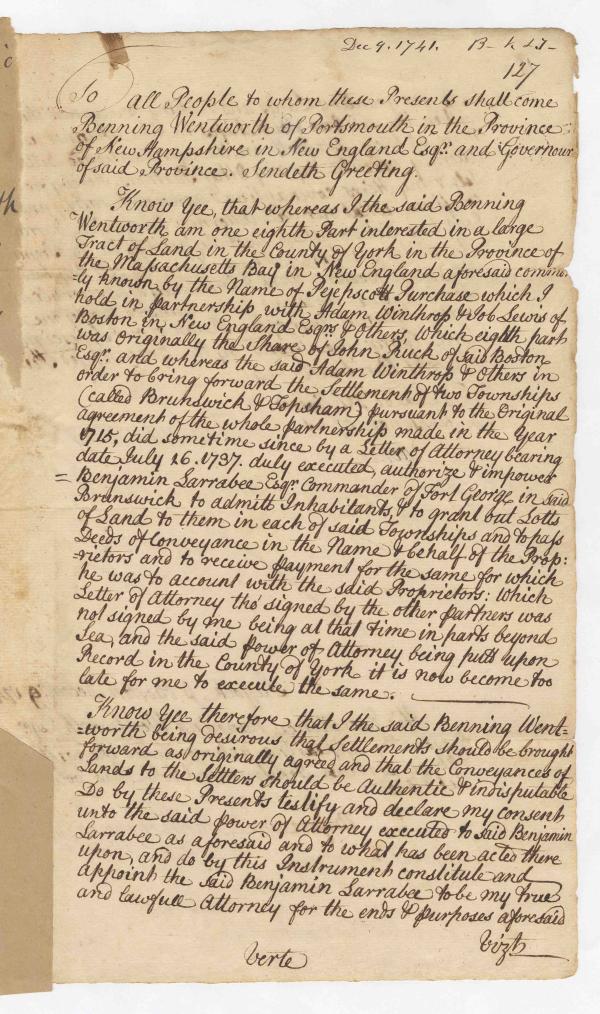 Dec 9. 1741. B -
127
To all People to whom these Presents shall come
Benning Wentworth of Portsmouth in the Province
of New Hampshire in New England Esqr. and Governour
of said Province. Sendeth Greeting.
Know Yee, that whereas I the said Benning
Wentworth am one eighth Part interested in a large
Tract of Land in the County of York in the Province of
the Massachusetts Bay in New England aforesaid common
=ly known by the Name of Pejepscott Purchase which I
hold in partnership with Adam Winthrop & Job Lewis of
Boston in New England Esqrs & Others, which eighth part
was Originally the Share of John Ruck of said Boston
Esqr. and whereas the said Adam Winthrop & Others in
order to bring forward the Settlement of two Townships
(called Brunswick & Topsham) pursuant to the Original
agreement of the whole partnership made in the Year
1715, did sometime since by a Letter of Attorney bearing
date July 26. 1737. duly executed, authorize & impower
= Benjamin Larrabee Esqr. Commander of Fort George in said
Brunswick to admitt Inhabitants, & to grant out Lotts
of Land to them in each of said Townships and to pass
Deeds of Conveyance in the Name & behalf of the Prop:
=rietors and to receive payment for the same for which
he was to account with the said Proprietors: which
Letter of Attorney tho' signed by the other partners was
not signed by me being at that time in parts beyond
Sea, and the said power of Attorney being putt upon
Record in the County of York it is now become too
late for me to execute the same.
Know Yee therefore that I the said Benning Went-
=worth being desirous that Settlements should be brought
forward as originally agreed and that the Conveyances of
Lands to the Settlers should be Authentic & indisputable
Do by these Presents testify and declare my consent
unto the said power of Attorney executed to said Benjamin
Larrabee as aforesaid and to what has been acted there
upon, and do by this Instrument constitute and
appoint the said Benjamin Larrabee to be my true
and lawfull Attorney for the ends & purposes aforesaid
Vizt
verte